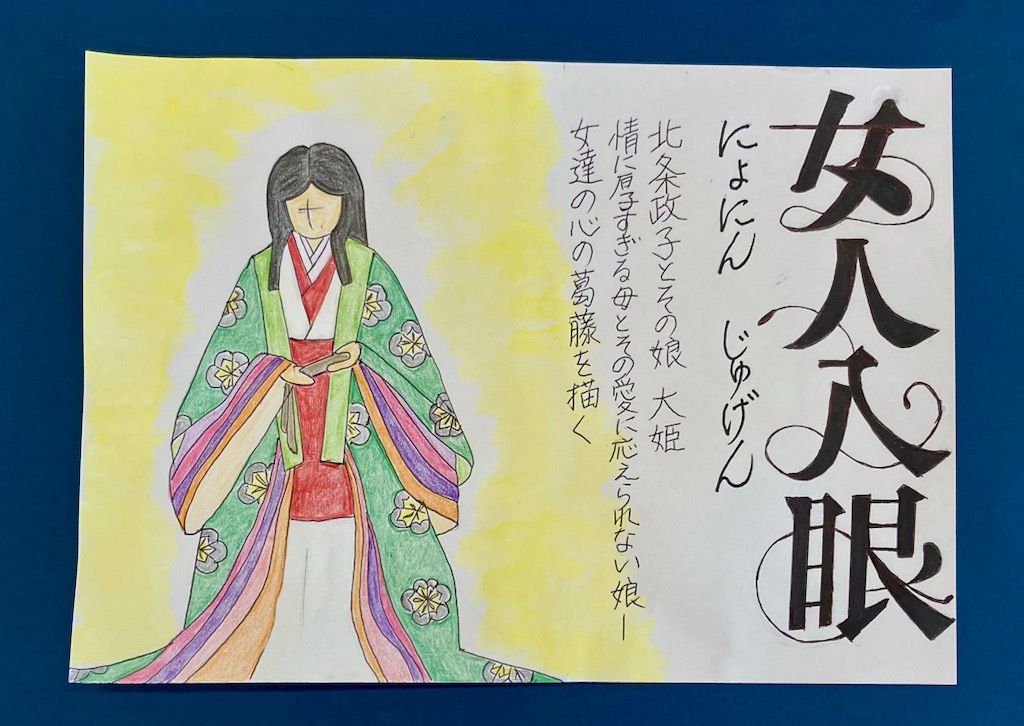 女人入眼
にょにん じゅげん
北条政子とその娘 大姫
情に厚すぎる母とその愛に応えられない娘ー
女達の心の葛藤を描く